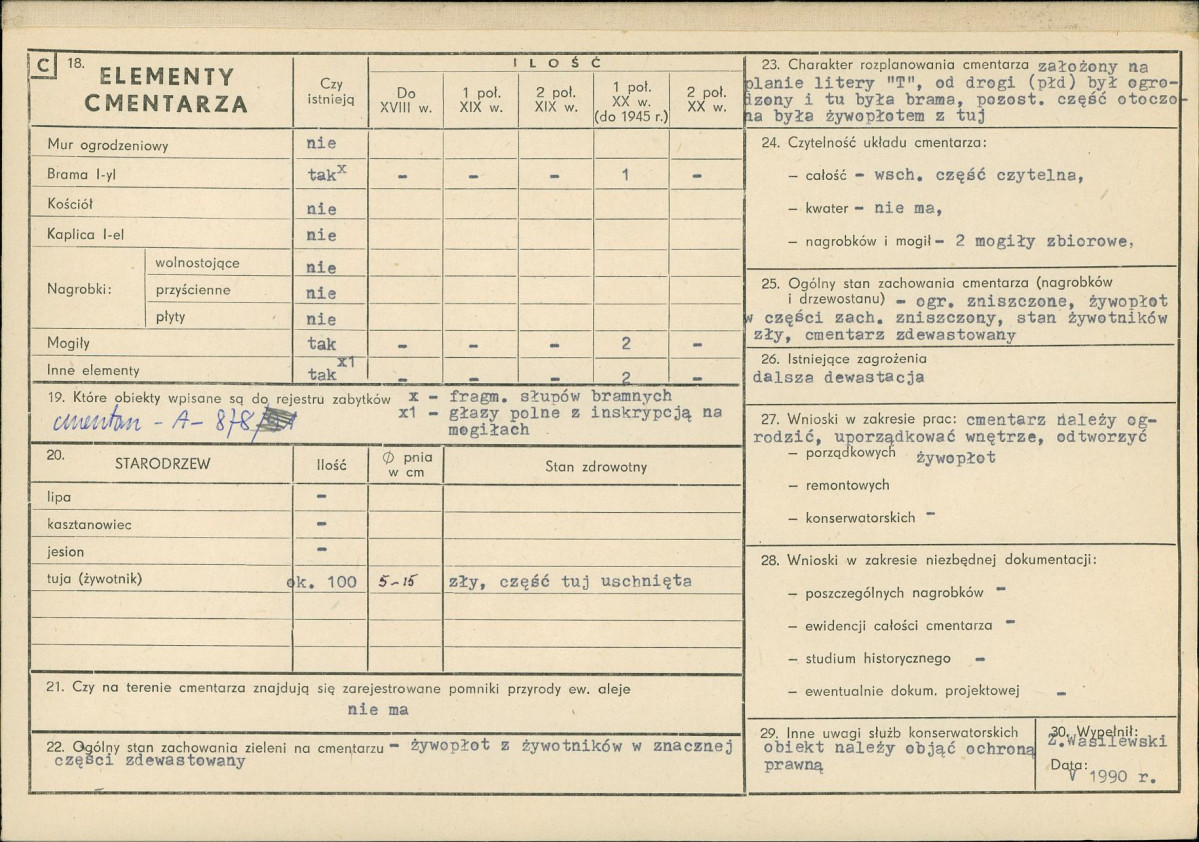 C 18. ELEMENTY CMENTARZA
Czy istnieją
ILOŚĆ
Do XVIII w.
1 poł. XIX w.
2 poł. XIX w.
1 poł. XX w. (do 1945 r.)
2 poł. XX w.
Mur ogrodzeniowy nie
Brama I-yl tak x – – – 1 –
Kościół nie
Kaplica I-el nie
Nagrobki:
wolnostojące nie
przyścienne nie
płyty nie
Mogiły tak – – – 2 –
Inne elementy tak x1 – – – 2 –
19. Które obiekty wpisane są do rejestru zabytków x – fragm. słupów bramnych
cmentarz - A - 878/ x1 – głazy polne z inskrypcją na
mogiłach
20. STARODRZEW Ilość Ø pnia w cm Stan zdrowotny
lipa –
kasztanowiec –
jesion –
tuja (żywotnik) ok. 100 5-15 zły, część tuj uschnięta
21. Czy na terenie cmentarza znajdują się zarejestrowane pomniki przyrody ew. aleje
nie ma
22. Ogólny stan zachowania zieleni na cmentarzu – żywopłot z żywotników w znacznej
części zdewastowany
23. Charakter rozplanowania cmentarza założony na
planie litery "T", od drogi (płd) był ogro-
dzony i tu była brama, pozost. część otoczo-
na była żywopłotem z tuj
24. Czytelność układu cmentarza:
– całość – wsch. część czytelna,
– kwater – nie ma,
– nagrobków i mogił – 2 mogiły zbiorowe,
25. Ogólny stan zachowania cmentarza (nagrobków
i drzewostanu) – ogr. zniszczone, żywopłot
w części zach. zniszczony, stan żywotników
zły, cmentarz zdewastowany
26. Istniejące zagrożenia
dalsza dewastacja
27. Wnioski w zakresie prac: cmentarz należy og-
rodzić, uporządkować wnętrze, odtworzyć
– porządkowych żywopłot
– remontowych
– konserwatorskich –
28. Wnioski w zakresie niezbędnej dokumentacji:
– poszczególnych nagrobków –
– ewidencji całości cmentarza –
– studium historycznego –
– ewentualnie dokum. projektowej –
29. Inne uwagi służb konserwatorskich
obiekt należy objąć ochroną
prawną
30. Wypełnił:
Z.Wasilewski
Data:
V 1990 r.